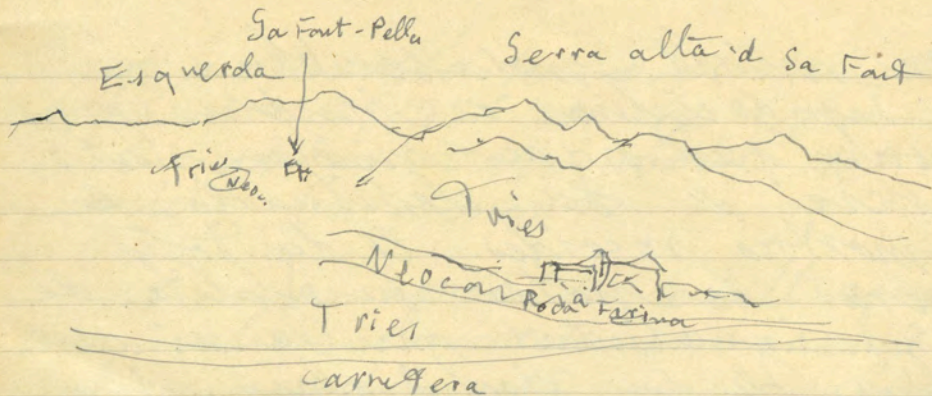 Sa Font-Pella
Esquerda
Serra alta d Sa Font
Tries
Neoc.
Tries
Neocom
Roca Farina
Tries
carretera